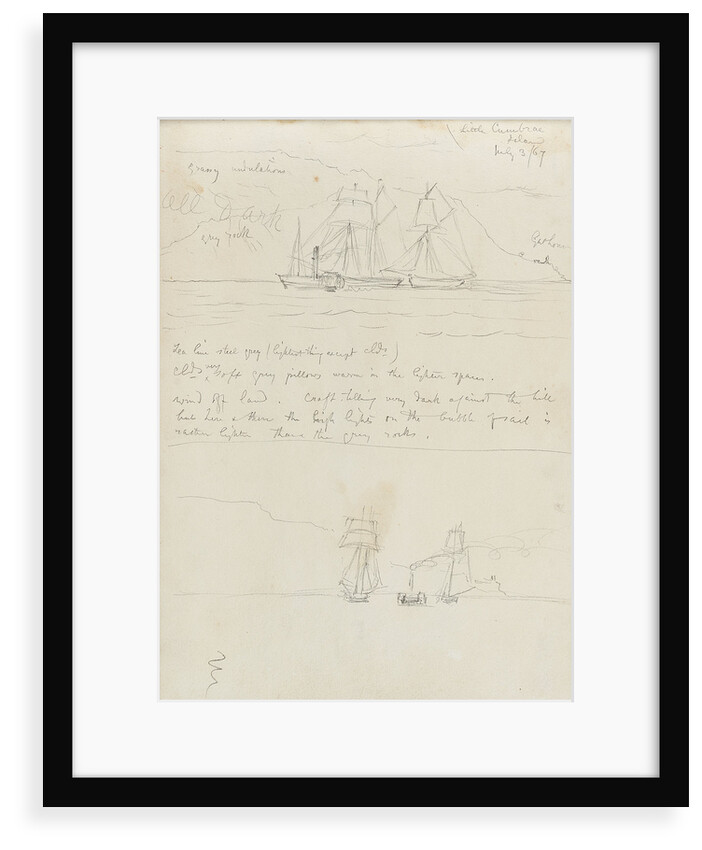 Little Cumbrae
Island
July 3/67
grassy undulations
all dark
grey rock
rock
Sea line steel grey (lightest thing except clds)
clds very soft grey pillows warm in the lighter spaces.
wind off land. Craft telling very dark against the hill
but here & there the high lights on the bubble of sail is
rather lighter than the grey rocks.